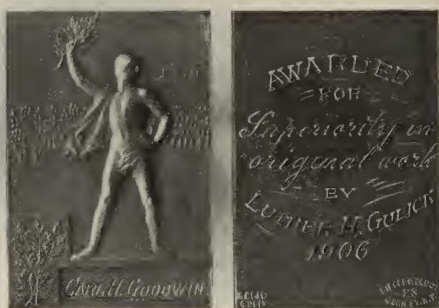 CARL H. GOODWIN
AWARDED
FOR
Superiority in
original work
BY
LUTHER H. GULICK
1906
SOLID
GOLD